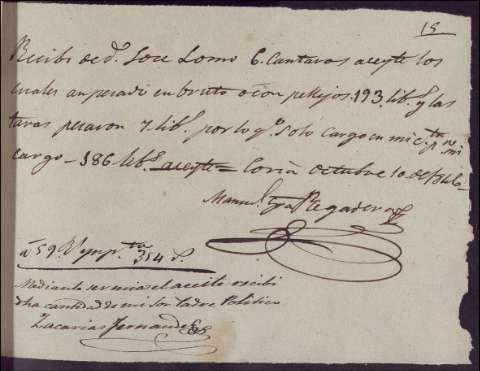 15
Recibi de dn. Jose Lomo 6. Cantaros aceyte los
cuales an pesado en bruto o con pellejos 193 libs. y las
taras pesaron 7. libs. por lo qe. solo cargo en mi cta. pr. mi
cargo - 186 libs. aceyte = Coria octubre 10 de 1846
Manuel
a 59 Rs. 354 rs.
Mediante ser mias el aceite recibi
dha cantidad de mi Sor. Padre Politico
Zacarias Fernandez